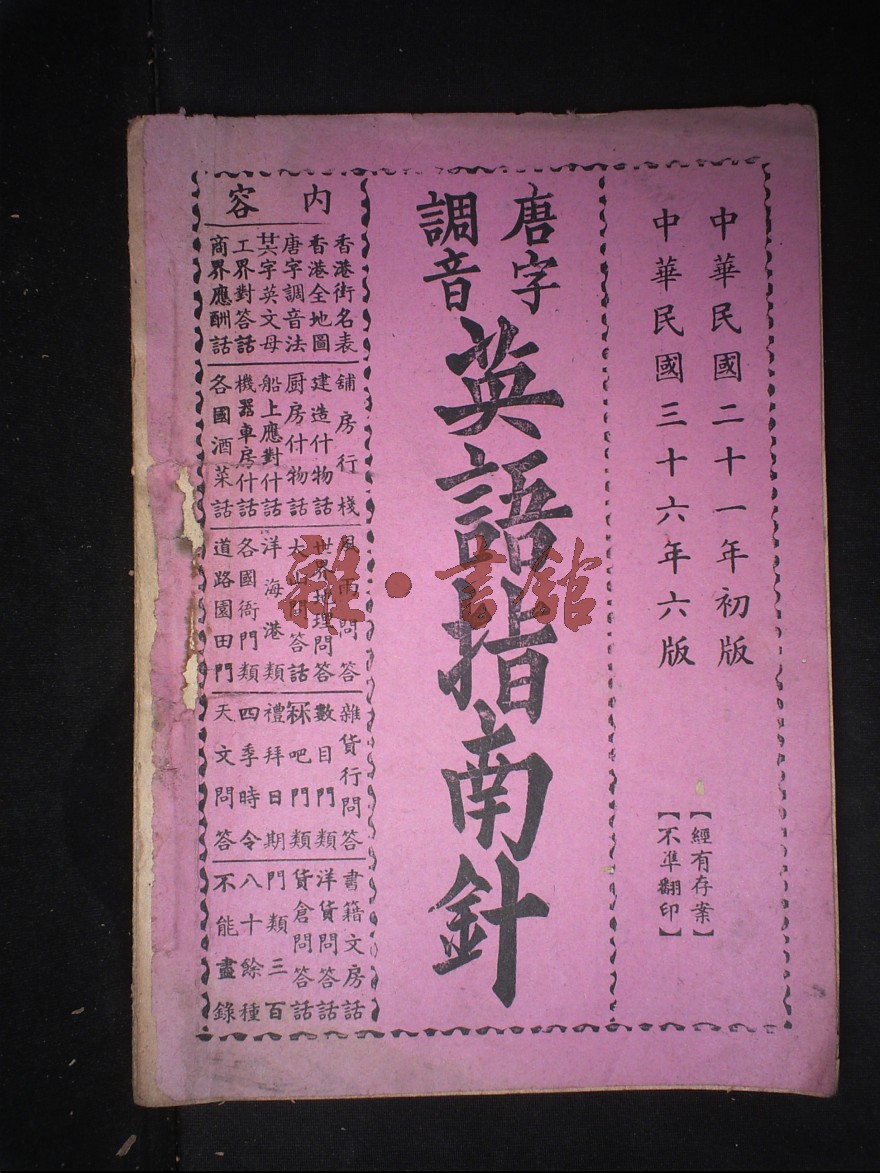 中華民國二十一年初版
中華民國三十六年六版
【經有存案】
【不準翻印】
唐字
調音
英語指南針
內容
香港街名表
香港全地圖
唐字調音法
廿六字英文母
工界對答話
商界應酬話
舖房行棧
建造什物話
厨房什物話
船上應對什話
機器車房什話
各國酒菜話
風雨問答
世界地理問答
大山問答話
洋海港類
各國衙門類
道路園田門
雜貨行問答
數目門類
吧門類
禮拜日期
四季時令
天文問答
書籍文房話
洋貨問答話
貨倉問答話
門類三百
八十餘種
不能盡錄
雜·書舘